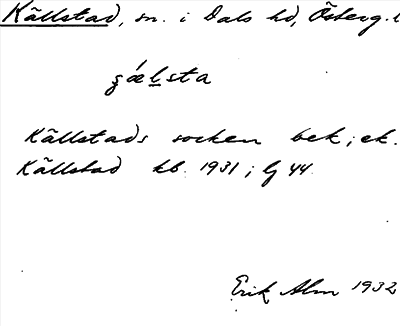 Källstad, sn. i Dals hd, Österg. l
gǽlsta
Källstads socken bek; ek.
Källstad kb. 1931; lj 44
Erik Alm 1932